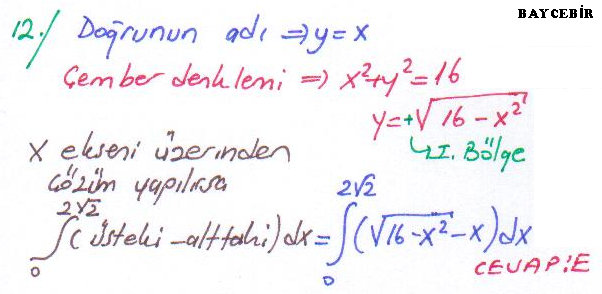 BAYCEBİR
12./ Doğrunun adı ⇒ y=x
Çember denklemi ⇒ x²+y²=16
y=+√16-x²
↳ I. Bölge
X ekseni üzerinden
çözüm yapılırsa
∫₀^2√2 (üsteki-alttaki)dx = ∫₀^2√2 (√16-x² -x)dx
CEVAP:E